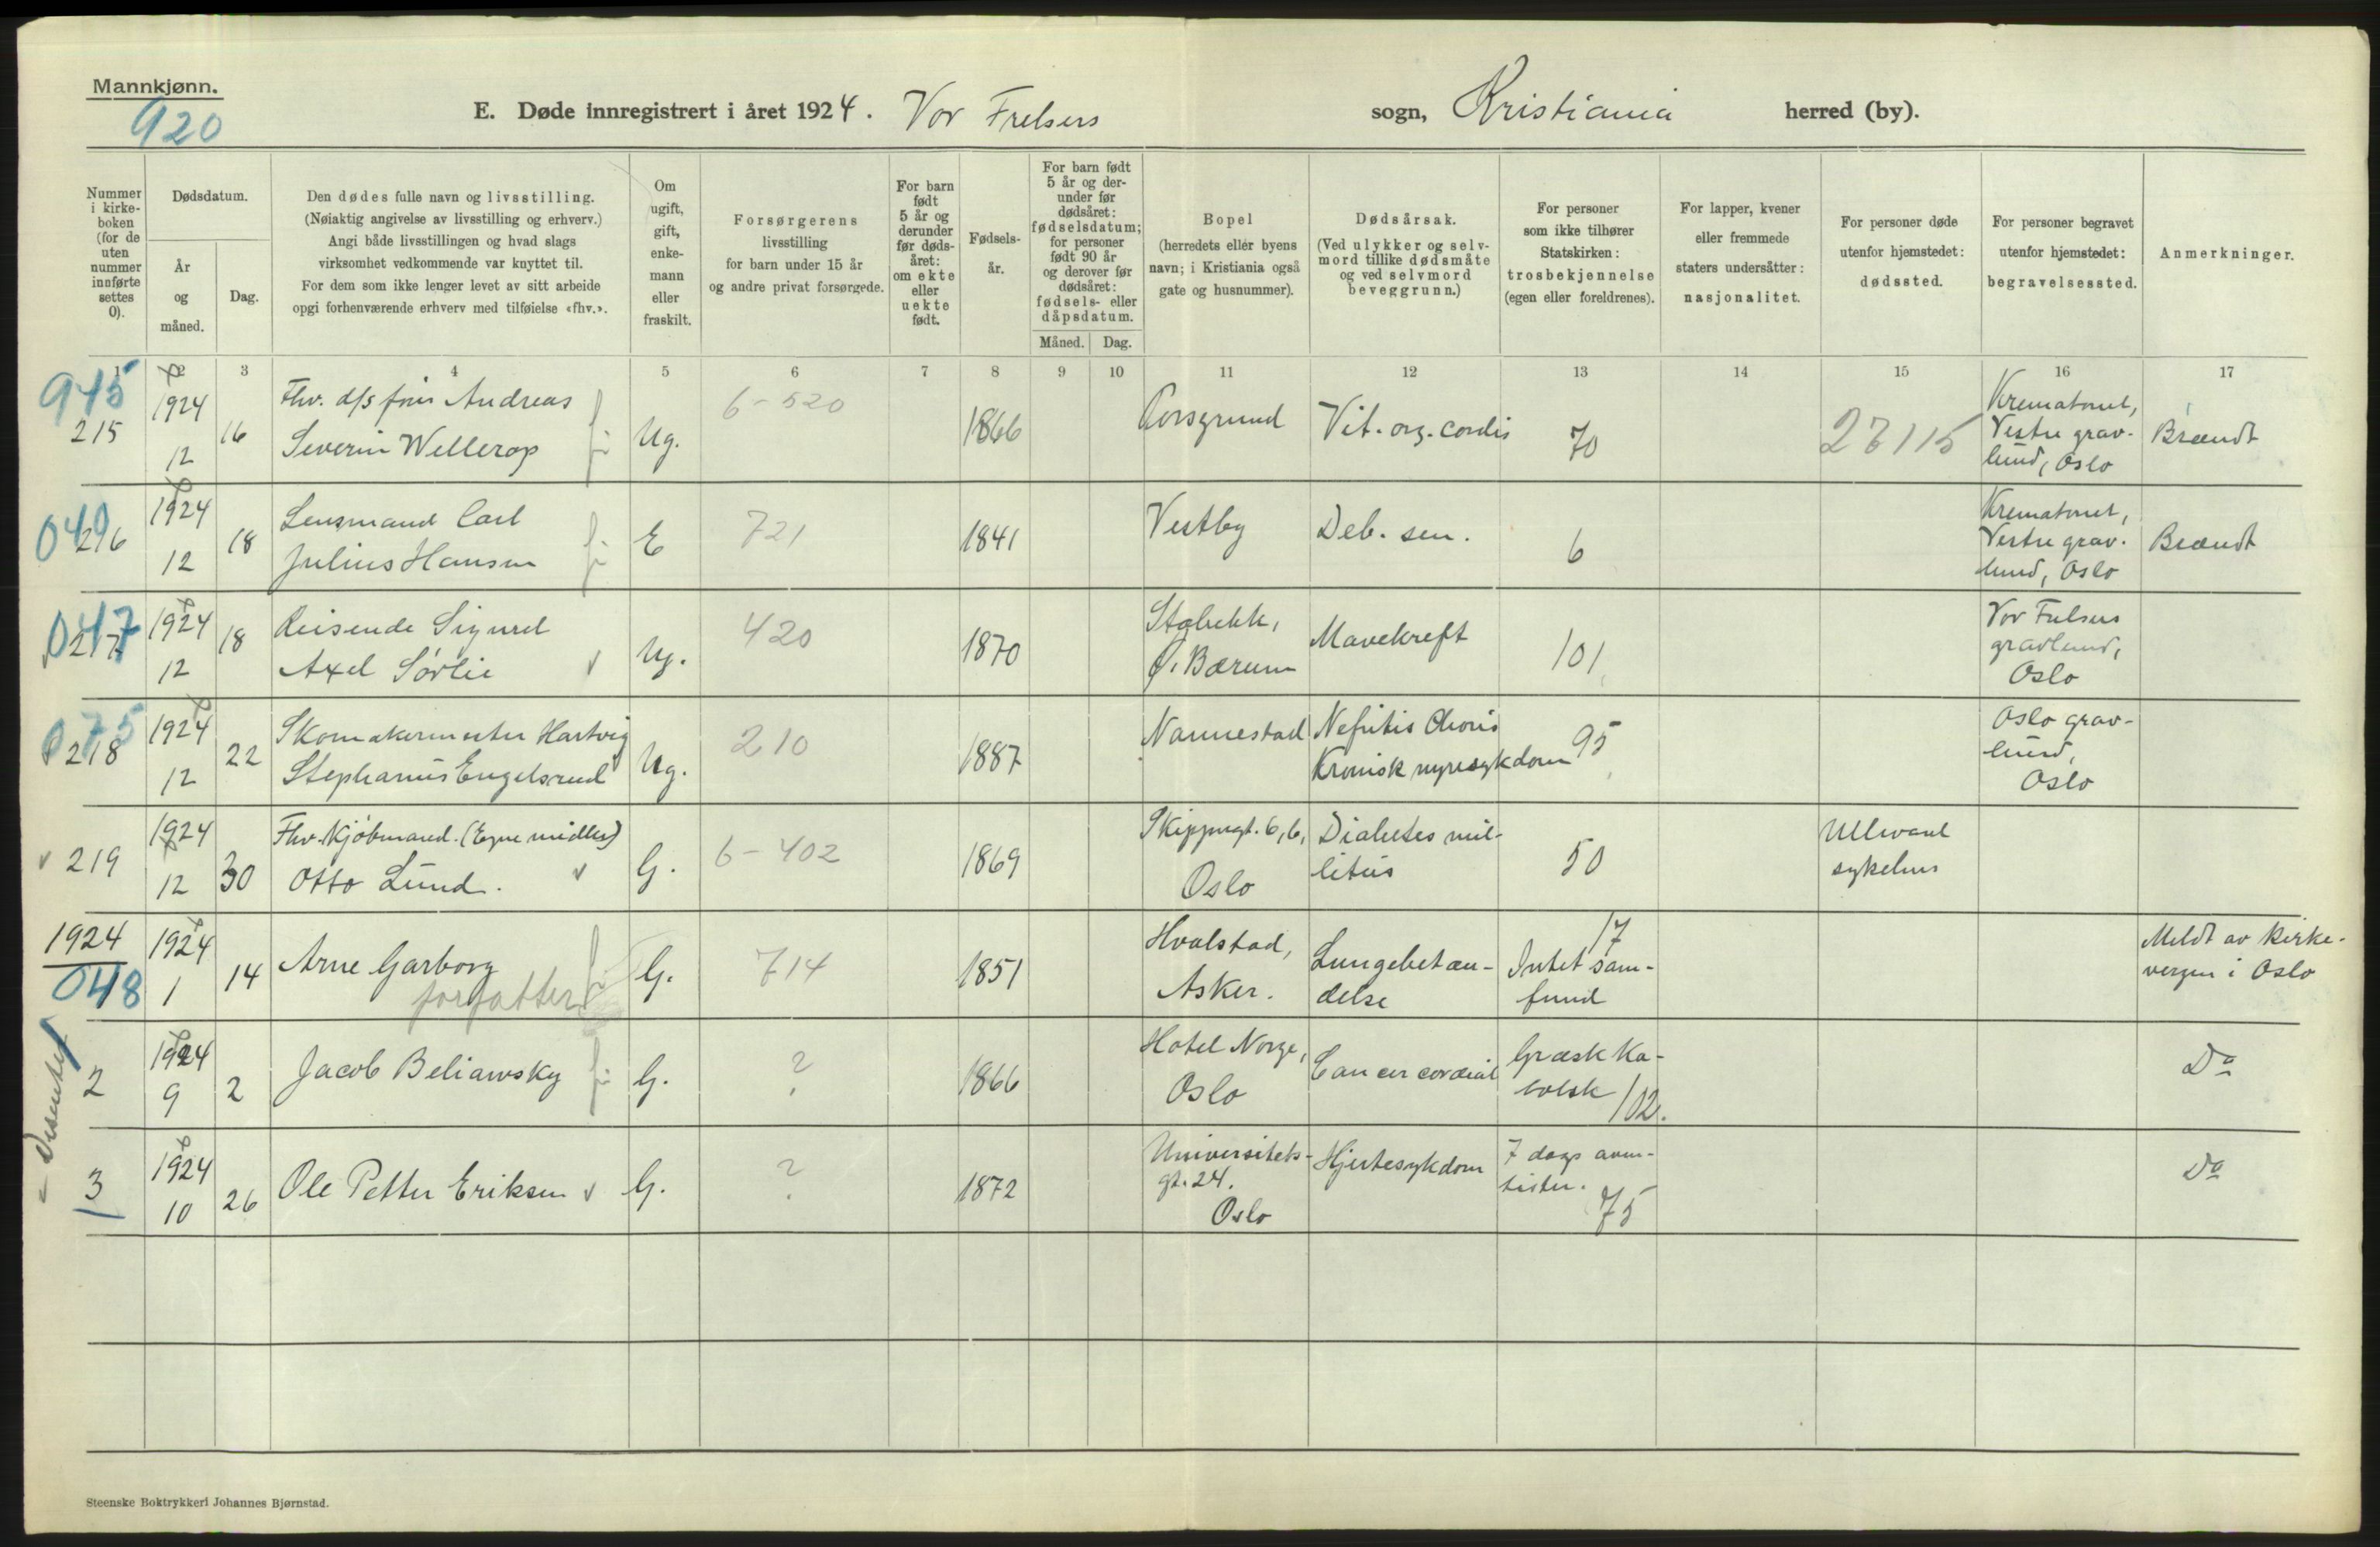 Mannkjønn.
920
E. Døde innregistrert i året 1924. Vor Frelsers sogn, Kristiania herred (by).
Nummer i kirkeboken (for de uten nummer innførte settes 0).
Dødsdatum.
År og måned.
Dag.
Den dødes fulle navn og livsstilling.
(Nøiaktig angivelse av livsstilling og erhverv.)
Angi både livsstillingen og hvad slags
virksomhet vedkommende var knyttet til.
For dem som ikke lenger levet av sitt arbeide
opgi forhenværende erhverv med tilføielse «fhv.».
Om ugift, gift, enkemann eller fraskilt.
Forsørgerens
livsstilling
for barn under 15 år
og andre privat forsørgede.
For barn født 5 år og derunder før dødsåret: om ekte eller uekte født.
Fødselsår.
For barn født 5 år og derunder før dødsåret: fødselsdatum; for personer født 90 år og derover før dødsåret: fødsels- eller dåpsdatum.
Måned. Dag.
Bopel
(herredets eller byens
navn; i Kristiania også
gate og husnummer).
Dødsårsak.
(Ved ulykker og selvmord tillike dødsmåte og ved selvmord beveggrunn.)
For personer
som ikke tilhører
Statskirken:
trosbekjennelse
(egen eller foreldrenes).
For lapper, kvener
eller fremmede
staters undersåtter:
nasjonalitet.
For personer døde
utenfor hjemstedet:
dødssted.
For personer begravet
utenfor hjemstedet:
begravelsessted.
Anmerkninger.
1 2 3 4 5 6 7 8 9 10 11 12 13 14 15 16 17
945
215 1924 12 16 Fhv. Andreas
Severin Wellerop Ug. 6-520 1866 Porsgrund Vit. org. cordis 70 27115 Krematoriet,
Vestre grav-
lund, Oslo Brændt
216 1924 12 18 Lensmand Carl
Julius Hansen E 721 1841 Vestby Deb. sen. 6 Krematoriet,
Vestre grav-
lund, Oslo Brændt
047
217 1924 12 18 Reisende Sigurd
Axel Sørlie Ug. 420 1870 Stabekk,
Ø. Bærum Mavekreft 101 Vor Frelsers
gravlund,
Oslo
218 1924 12 22 Skomakermester Hartvig
Stephanus Engelsrud Ug. 210 1887 Nannestad Nefritis Chronis
Kronisk nyresykdom 95 Oslo grav-
lund,
Oslo
219 1924 12 30 Fhv. Kjøbmand. (Egne midler)
Otto Lund. G. 6-402 1869 Skippergt. 6, b,
Oslo Diabetes mel-
litus 50 Ullevaal
sykehus
1924
048 1924 1 14 Arne Garborg
forfatter G. 714 1851 Hvalstad,
Asker. Lungebetæn-
delse 17
Intet sam-
fund Meldt av kirke-
vergen i Oslo
Dissenter
2 1924 9 2 Jacob Beliawsky G. ? 1866 Hotel Norge,
Oslo Cancer cordial Græsk Ka-
tolsk 102. Do
3 1924 10 26 Ole Petter Eriksen G. ? 1872 Universitets-
gt. 24.
Oslo Hjertesykdom 7 dags aven-
tister. 75 Do
Steenske Boktrykkeri Johannes Bjørnstad.